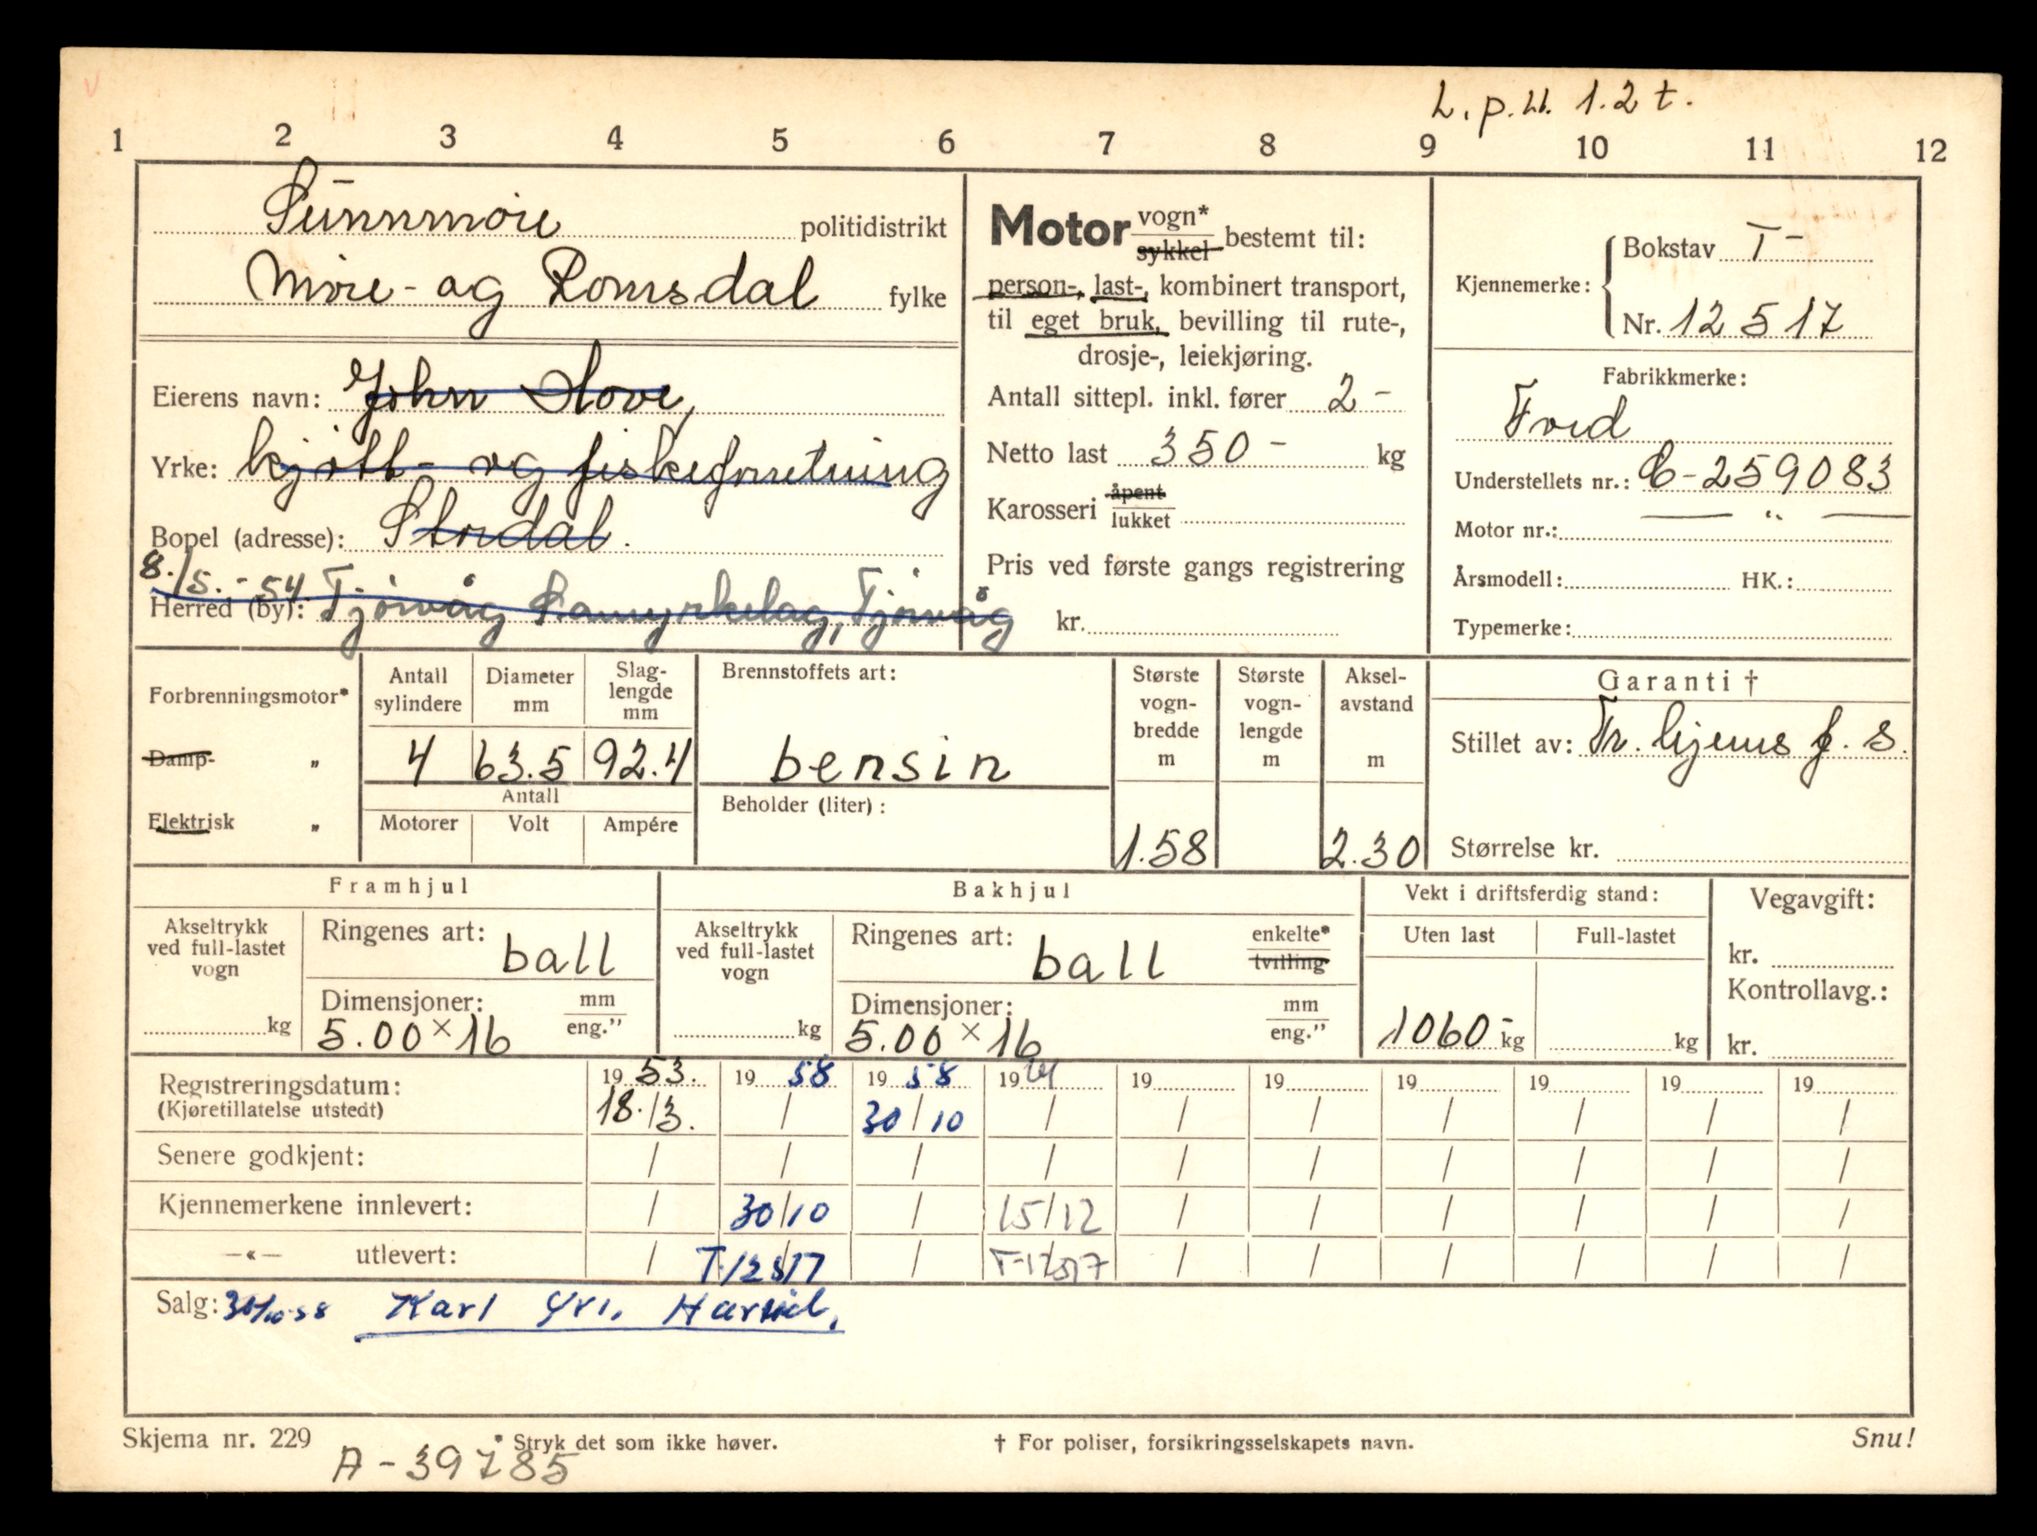 L. p. Lb. 1.2 t.
1 2 3 4 5 6 7 8 9 10 11 12
Sunnmøre politidistrikt
Møre- og Romsdal fylke
Eierens navn: John Hove,
Yrke: kjøtt- og fiskeforretning
Bopel (adresse): Stordal.
8./5. - 54 Tjørvåg Tjørvåg
Herred (by):
Motor vogn* sykkel bestemt til:
person-, last-, kombinert transport,
til eget bruk, bevilling til rute-,
drosje-, leiekjøring.
Antall sittepl. inkl. fører 2 -
Netto last 350 - kg
Karosseri åpent lukket
Pris ved første gangs registrering
kr.
Kjennemerke: Bokstav T -
Nr. 12517
Fabrikkmerke:
Ford
Understellets nr.: C-259083
Motor nr.: — " —
Årsmodell: HK.:
Typemerke:
Forbrenningsmotor*
Damp- „
Elektrisk „
Antall sylindere
4
Diameter mm
63.5
Slaglengde mm
92.4
Antall
Motorer Volt Ampére
Brennstoffets art:
bensin
Beholder (liter):
Største vognbredde m
1.58
Største vognlengde m
Akselavstand m
2.30
Garanti †
Stillet av: Tr. f. s.
Størrelse kr.
Framhjul
Akseltrykk ved full-lastet vogn
kg
Ringenes art: ball
Dimensjoner: mm eng."
5.00 × 16
Bakhjul
Akseltrykk ved full-lastet vogn
kg
Ringenes art: ball enkelte* tvilling
Dimensjoner: mm eng."
5.00 × 16
Vekt i driftsferdig stand:
Uten last Full-lastet
1060 - kg kg
Vegavgift:
kr.
Kontrollavg.:
kr.
Registreringsdatum: 19 53. 19 58 19 58 19 64 19 19 19 19 19 19
(Kjøretillatelse utstedt) 18./3. / 30/10 / / / / / / /
Senere godkjent: / / / / / / / / / /
Kjennemerkene innlevert: / 30/10 / 15/12 / / / / / /
—«— utlevert: / T-12517 / T-12517 / / / / / /
Salg: 30/10-58 Karl Yri, Hareid,
Skjema nr. 229 * Stryk det som ikke høver. † For poliser, forsikringsselskapets navn. Snu!
A - 39785